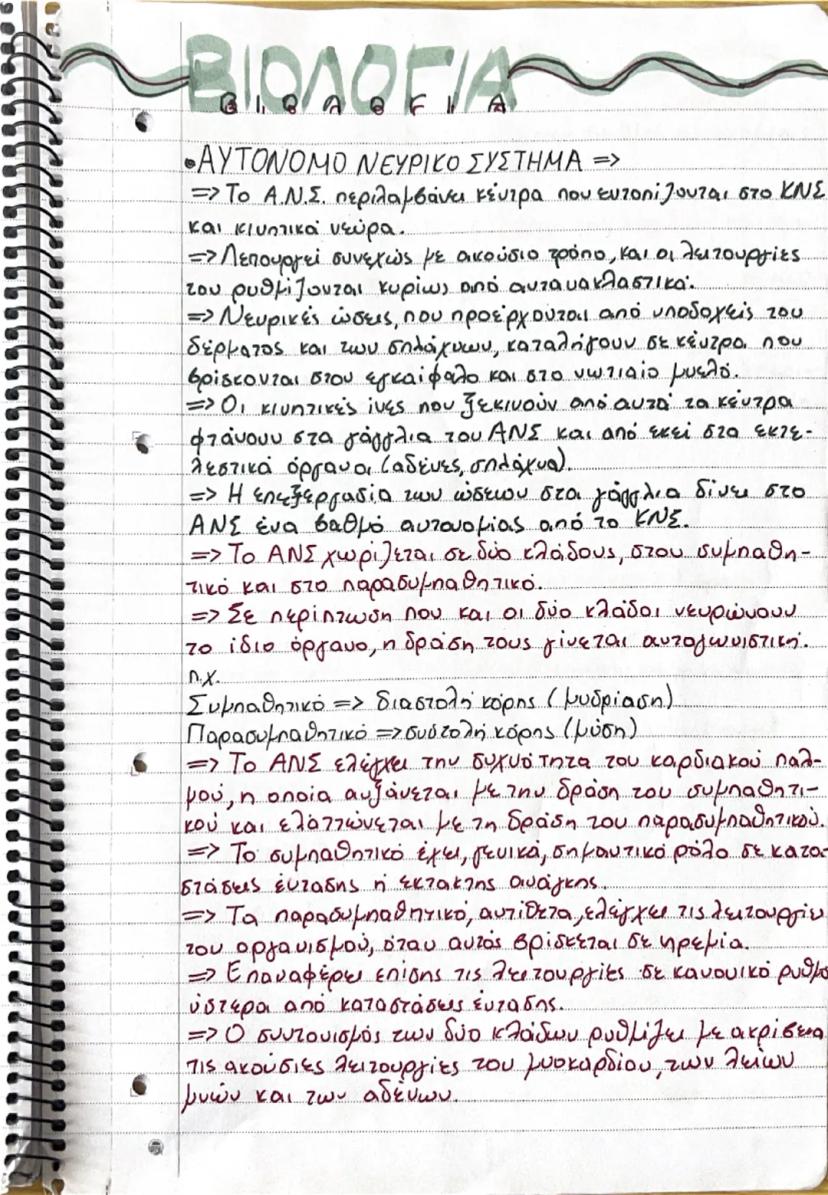 ΒΙΟΛΟΓΙΑ
ΒΙΟΛΟΓΙΑ
•ΑΥΤΟΝΟΜΟ ΝΕΥΡΙΚΟ ΣΥΣΤΗΜΑ =>
=> Το Α.Ν.Σ. περιλαμβάνει κέντρα που εντοπίζονται στο ΚΝΣ
και κινητικά νεύρα.
=> Λειτουργεί συνεχώς με ακούσιο τρόπο, και οι λειτουργίες
του ρυθμίζονται κυρίως από αντανακλαστικά.
=> Νευρικές ώσεις, που προέρχονται από υποδοχείς του
δέρματος και των σπλάχνων, καταλήγουν σε κέντρα που
βρίσκονται στον εγκαίφαλο και στο νωτιαίο μυελό.
=> Οι κινητικές ίνες που ξεκινούν από αυτά τα κέντρα
φτάνουν στα γάγγλια του ΑΝΣ και από εκεί στα εκτε-
λεστικά όργανα (αδένες, σπλάχνα).
=> Η επεξεργασία των ώσεων στα γάγγλια δίνει στο
ΑΝΣ ένα βαθμό αυτονομίας από το ΚΝΣ.
=> Το ΑΝΣ χωρίζεται σε δύο κλάδους, στον συμπαθη-
τικό και στο παρασυμπαθητικό.
=> Σε περίπτωση που και οι δύο κλάδοι νευρώνουν
το ίδιο όργανο, η δράση τους γίνεται ανταγωνιστική.
π.χ.
Συμπαθητικό => διαστολή κόρης (μυδρίαση)
Παρασυμπαθητικό => συστολή κόρης (μύση)
=> Το ΑΝΣ ελέγχει την συχνότητα του καρδιακού παλ-
μού, η οποία αυξάνεται με την δράση του συμπαθητι-
κού και ελαττώνεται με τη δράση του παρασυμπαθητικού.
=> Το συμπαθητικό έχει, γενικά, σημαντικό ρόλο σε κατα-
στάσεις έντασης ή έκτακτης ανάγκης.
=> Τα παρασυμπαθητικό, αντίθετα, ελέγχει τις λειτουργίε
του οργανισμού, όταν αυτός βρίσκεται σε ηρεμία.
=> Επαναφέρει επίσης τις λειτουργίες σε κανονικό ρυθμό
ύστερα από καταστάσεις έντασης.
=> Ο συντονισμός των δύο κλάδων ρυθμίζει με ακρίβεια
τις ακούσιες λειτουργίες του μυοκαρδίου, των λείων
μυών και των αδένων.